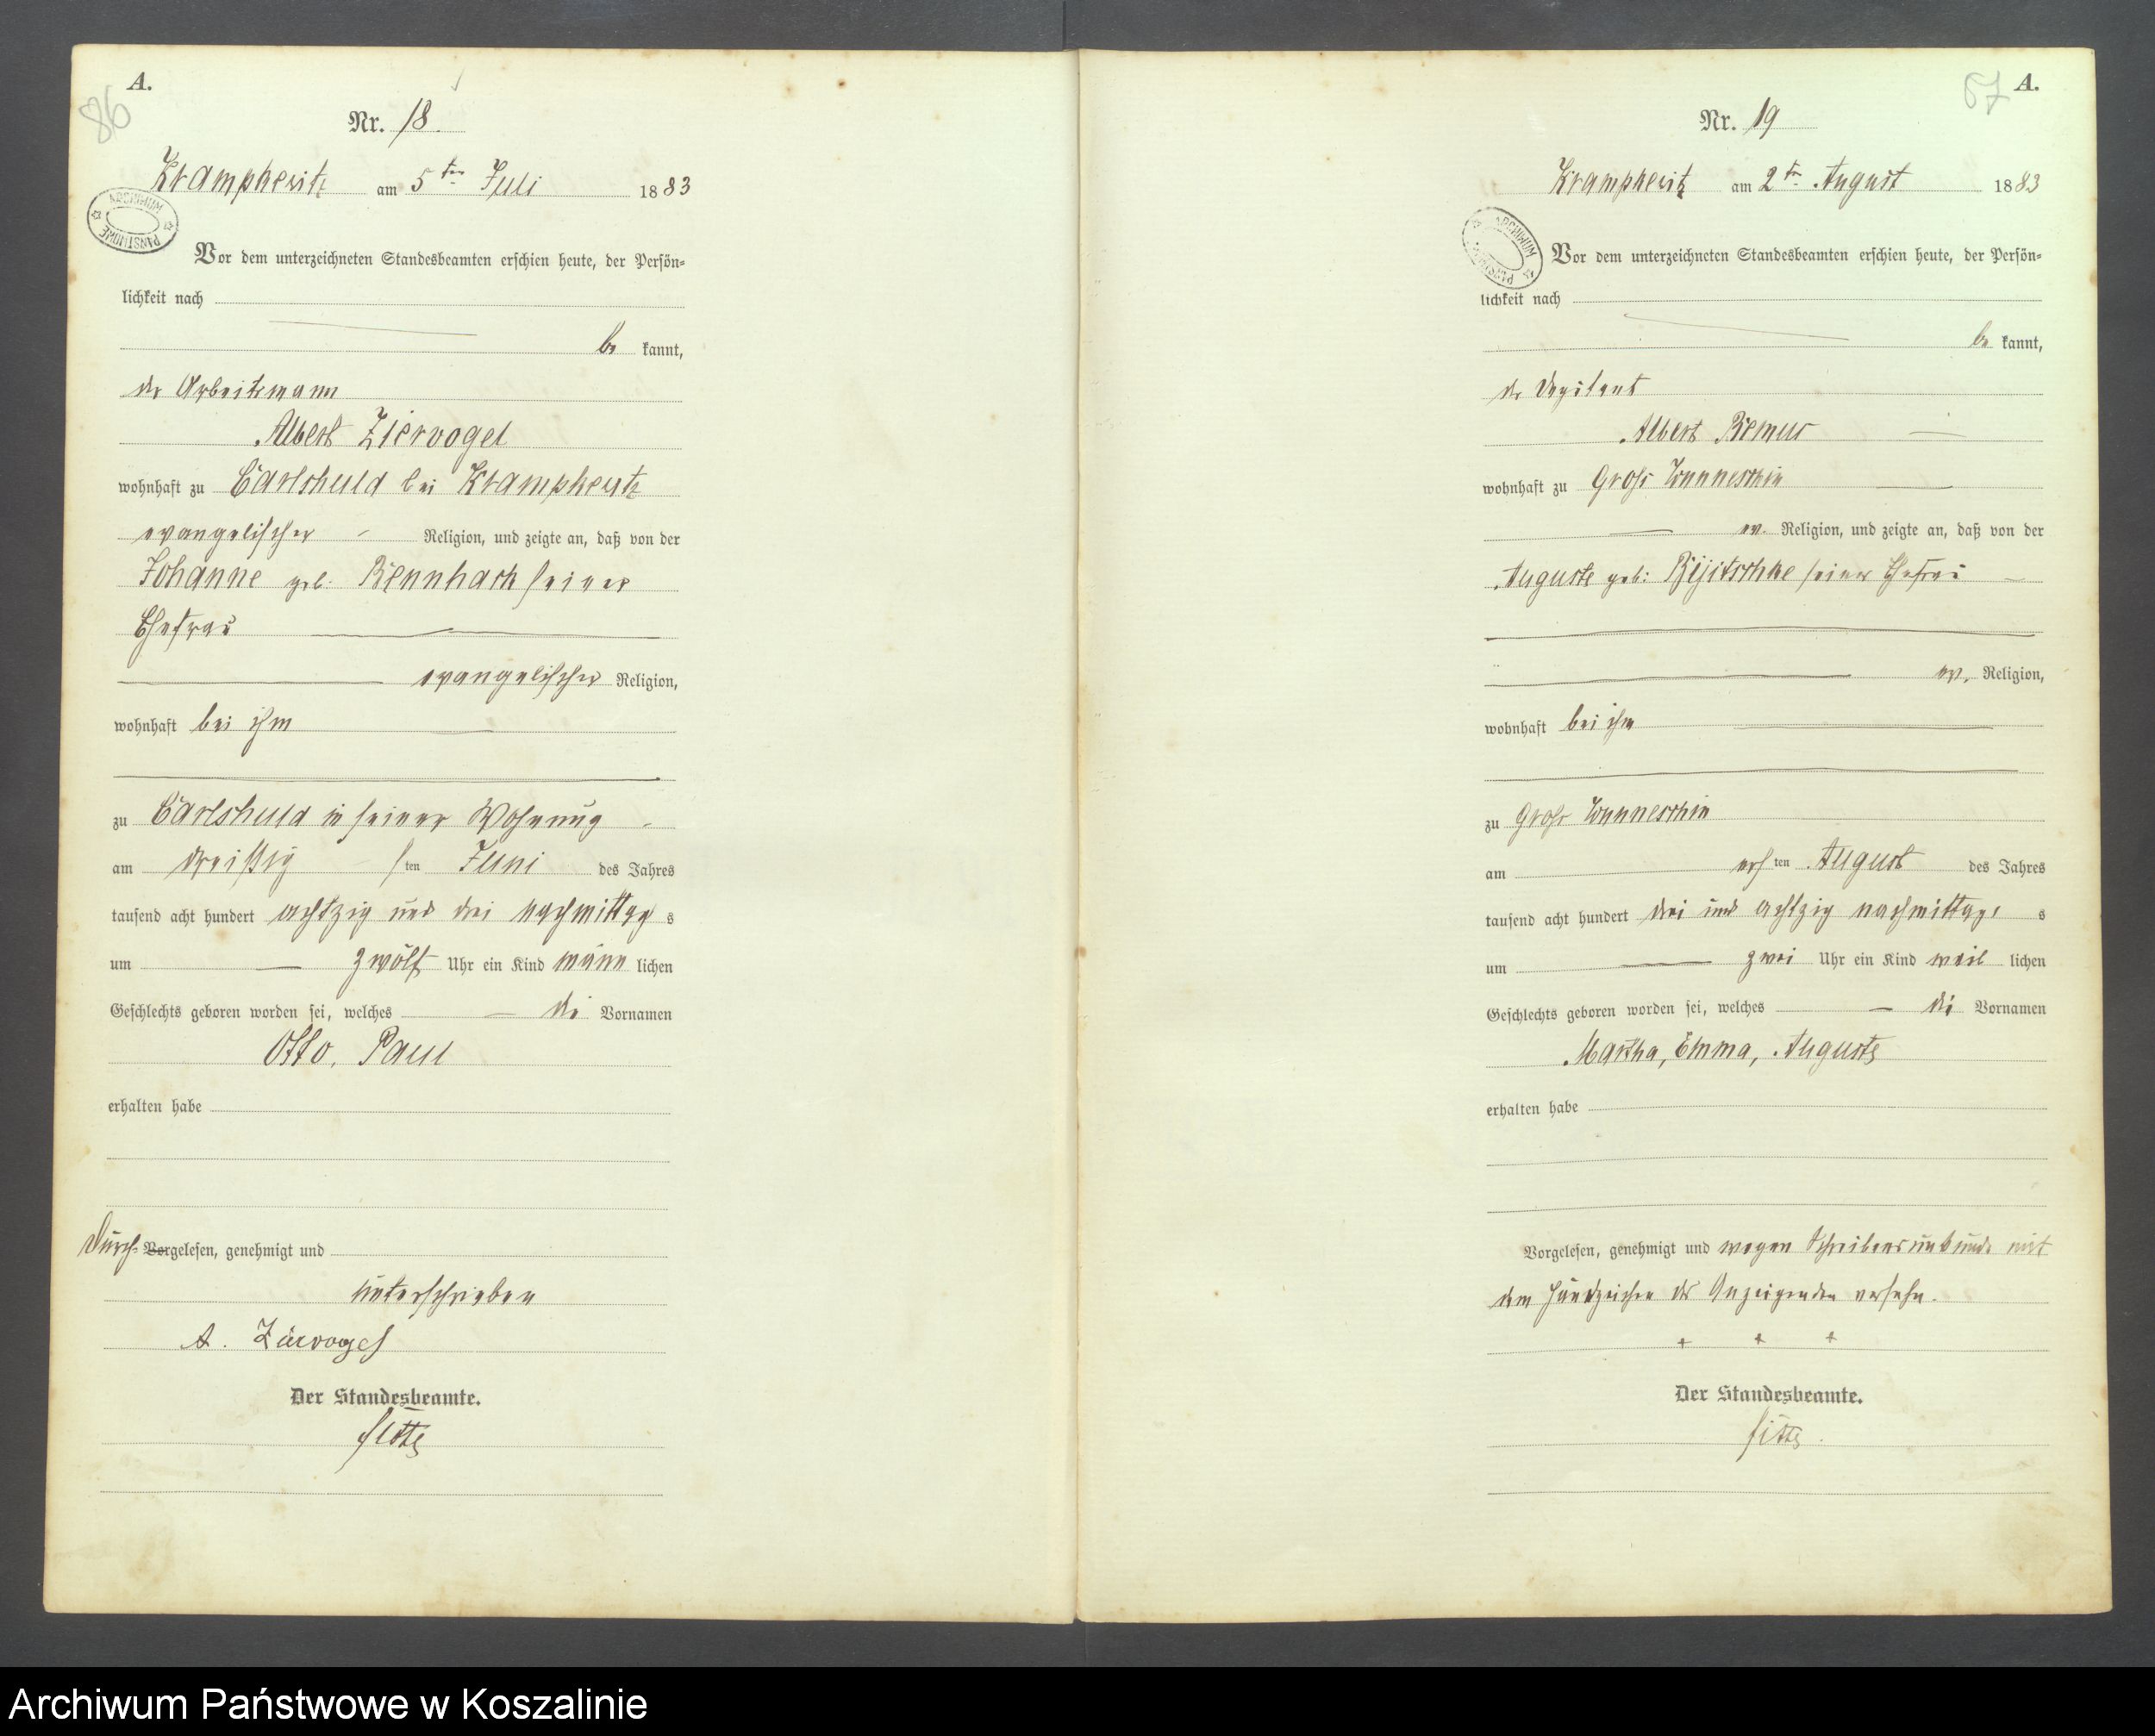 A.
86
Nr. 18.
Krampkewitz am 5ten Juli 1883
ARCHIWUM PAŃSTWOWE
Vor dem unterzeichneten Standesbeamten erschien heute, der Persön=
lichkeit nach
be kannt,
der Arbeitsmann
Albert Ziervogel
wohnhaft zu Carlshuld bei Krampkewitz
evangelischer Religion, und zeigte an, daß von der
Johanne geb. seiner
Ehefrau
evangelischer Religion,
wohnhaft bei ihm
zu Carlshuld in seiner Wohnung
am dreißig sten Juni des Jahres
tausend acht hundert achtzig und drei nachmittag s
um zwölf Uhr ein Kind männ lichen
Geschlechts geboren worden sei, welches die Vornamen
Otto, Paul
erhalten habe
Durch- Vorgelesen, genehmigt und
unterschrieben
A. Ziervogel
Der Standesbeamte.
A.
87
Nr. 19
Krampkewitz am 2ten August 1883
ARCHIWUM PAŃSTWOWE
Vor dem unterzeichneten Standesbeamten erschien heute, der Persön=
lichkeit nach
be kannt,
der
Albert Remus
wohnhaft zu Groß Wunneschin
ev. Religion, und zeigte an, daß von der
Auguste geb: seiner Ehefrau
ev. Religion,
wohnhaft bei ihm
zu Groß Wunneschin
am ersten August des Jahres
tausend acht hundert drei und achtzig nachmittags s
um zwei Uhr ein Kind weib lichen
Geschlechts geboren worden sei, welches die Vornamen
Martha, Emma, Auguste
erhalten habe
Vorgelesen, genehmigt und wegen Schreibensunkunde mit
dem Handzeichen des Anzeigenden versehn.
+ + +
Der Standesbeamte.
Archiwum Państwowe w Koszalinie